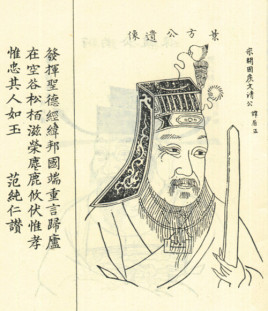 葉方公遺像
宋開國矦文清公
發揮聖德經緯邦國端重言歸廬
在空谷松栢滋榮麋鹿攸伏惟孝
惟忠其人如玉
范純仁讚